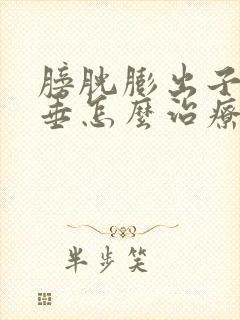 膀胱膨出子
垂怎麼治療
半步笑